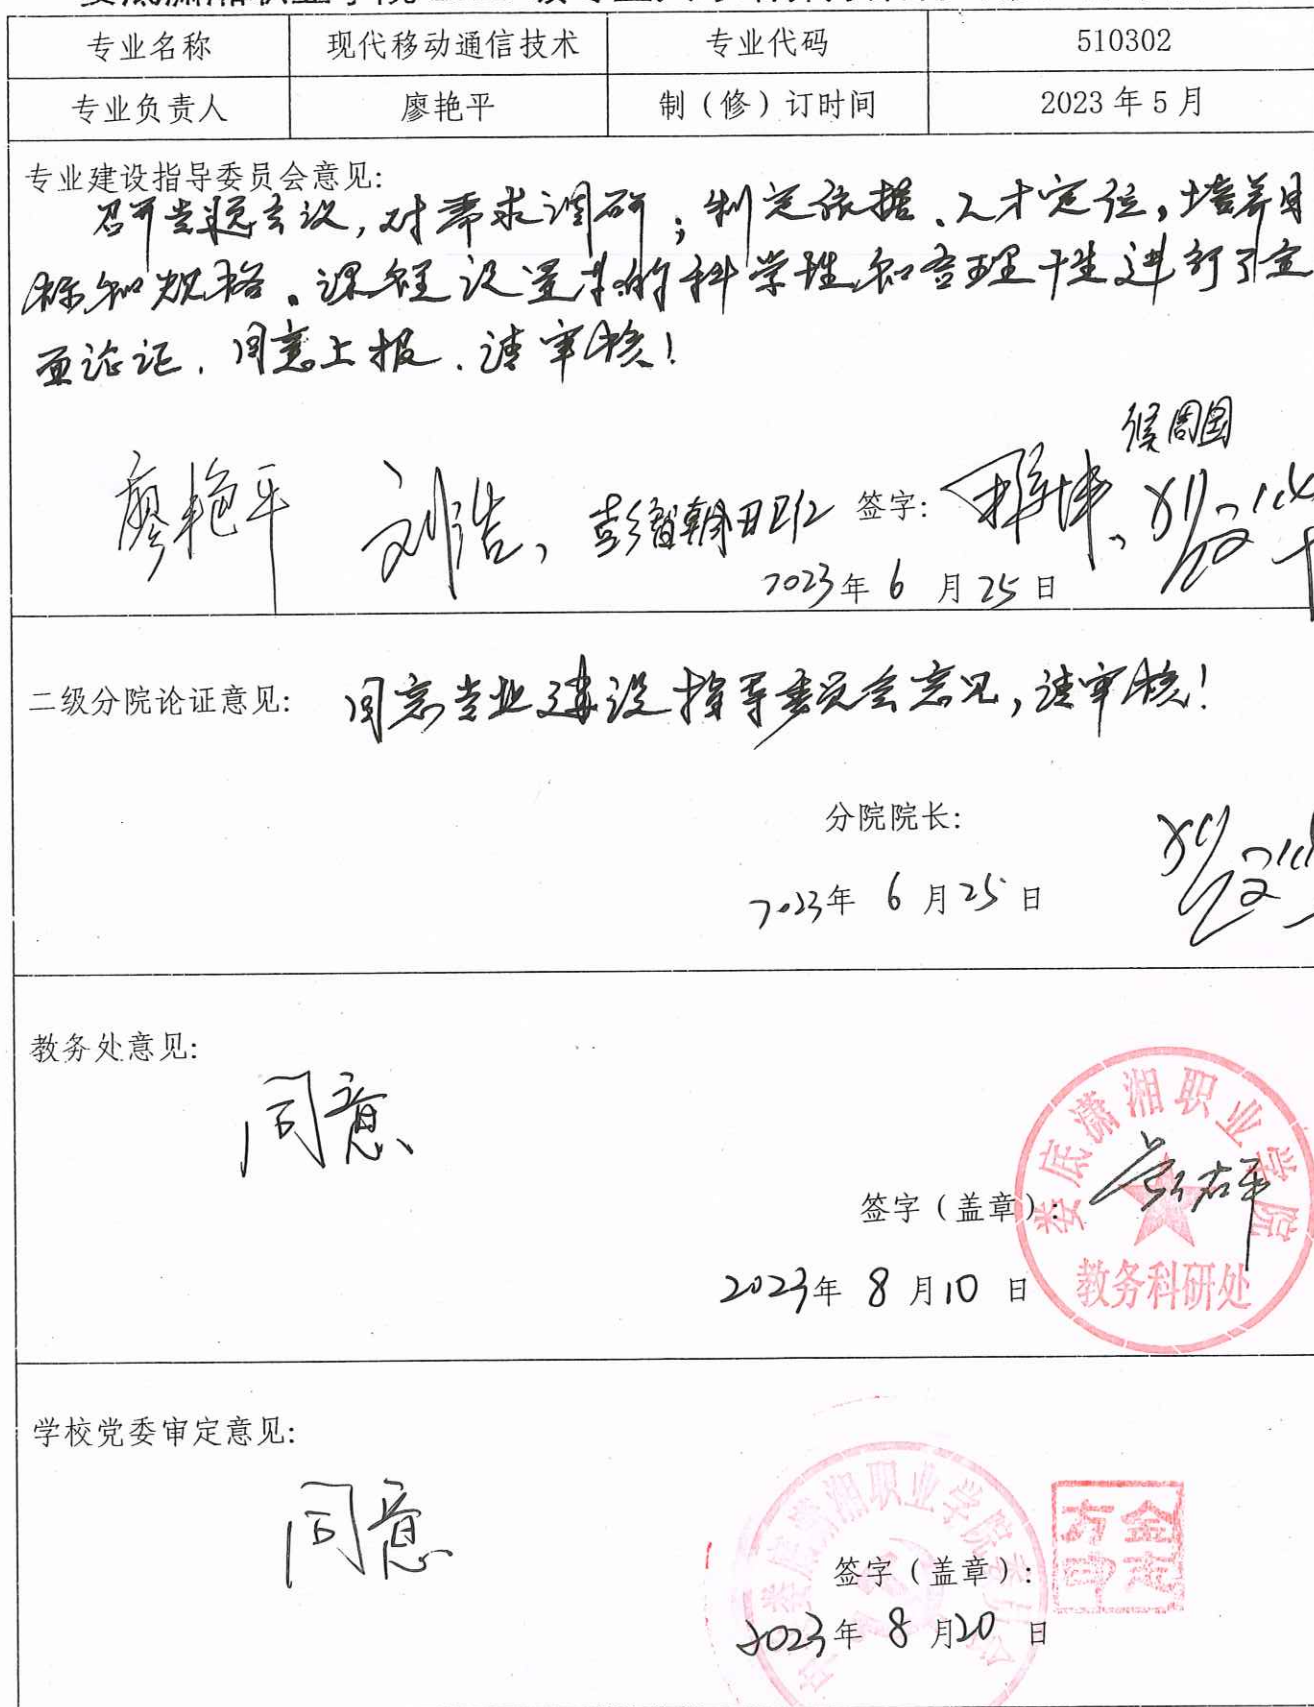 专业名称 现代移动通信技术 专业代码 510302
专业负责人 廖艳平 制（修）订时间 2023年5月
专业建设指导委员会意见:
召开专题会议，对需求调研；制定依据、人才定位，培养目
标和规格、课程设置等的科学性和合理性进行了全
面论证．同意上报．请审核！
侯周国
廖艳平 刘浩、彭智朝 签字:
2023年6月25日
二级分院论证意见: 同意专业建设指导委员会意见，请审核！
分院院长:
2023年6月25日
教务处意见:
同意
娄底潇湘职业学院
签字（盖章）:
2023年8月10日
教务科研处
学校党委审定意见:
同意
娄底潇湘职业学院委员会
签字（盖章）:
金志
方印
2023年8月20日